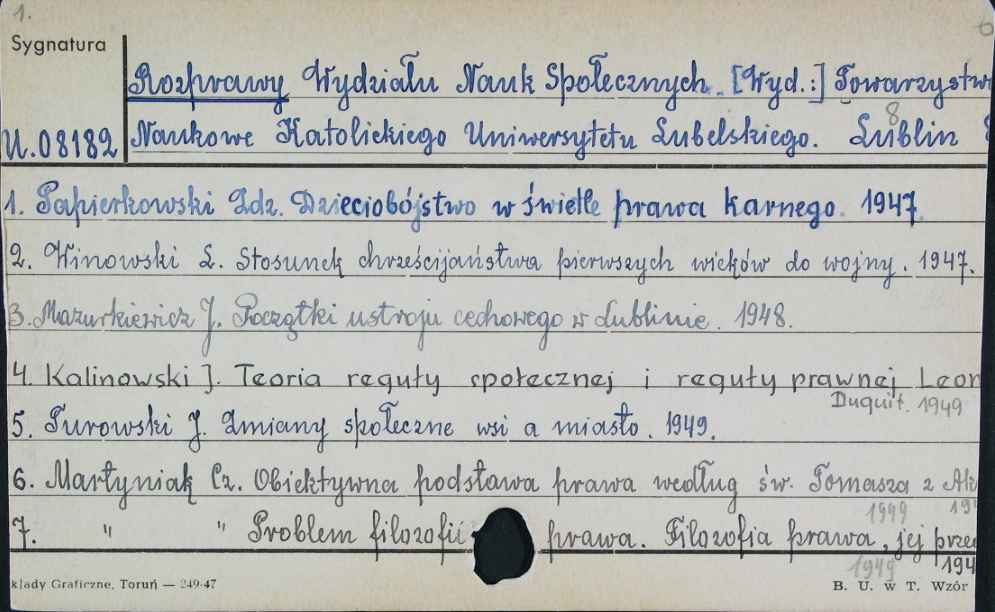 1.
Sygnatura
Rozprawy Wydziału Nauk Społecznych. [Wyd.:] Towarzystw
U.08182
Naukowe Katolickiego Uniwersytetu Lubelskiego. Lublin
8
1. Papierkowski Zdz. Dzieciobójstwo w świetle prawa karnego. 1947.
2. Winowski L. Stosunek chrześcijaństwa pierwszych wieków do wojny. 1947.
3. Mazurkiewicz J. Początki ustroju cechowego w Lublinie. 1948.
4. Kalinowski J. Teoria reguły społecznej i reguły prawnej Leon
Duguit. 1949
5. Turowski J. Zmiany społeczne wsi a miasto. 1949.
6. Martyniak Cz. Obiektywna podstawa prawa według św. Tomasza z Ak
1949 194
7. " " Problem filozofii prawa. Filozofia prawa, jej prze
1949 194
kłady Graficzne, Toruń — 249-47
B. U. w T. Wzór